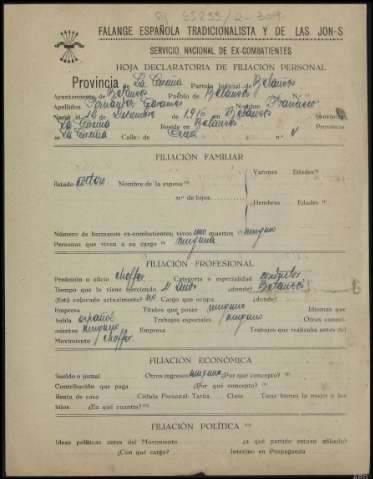 FALANGE ESPAÑOLA TRADICIONALISTA Y DE LAS JON-S
SERVICIO NACIONAL DE EX-COMBATIENTES
HOJA DECLARATORIA DE FILIACION PERSONAL
Provincia de La Coruña Partido Judicial de Betanzos
Ayuntamiento de Betanzos Puesto de Betanzos N.º
Apellidos Nombre Francisco
Nació el 12 de de 1916 en Betanzos Provincia
La Coruña Reside en Betanzos Provincia
de La Coruña Calle de Cruz n.º
FILIACIÓN FAMILIAR
Estado Nombre de la esposa Varones Edades
n.º de hijos Hembras Edades
Número de hermanos ex-combatientes; vivos uno muertos ninguno
Personas que viven a su cargo ninguna
FILIACIÓN PROFESIONAL
Profesión u oficio choffer Categoría o especialidad
Tiempo que la viene ejerciendo años ¿donde? Betanzos
¿Está colocado actualmente? Cargo que ocupa ¿donde?
Empresa Títulos que posee ninguno Idiomas que
habla español Trabajos especiales ninguno Otros conoci-
mientos ninguno Empresa Trabajos que realizaba antes del
Movimiento choffer
FILIACIÓN ECONÓMICA
Sueldo o jornal Otros ingresos ninguno ¿Por qué concepto?
Contribución que paga ¿Por qué concepto?
Renta de casa Cédula Personal Tarifa Clase Tiene bienes la mujer o los
hijos ¿En qué cuantía?
FILIACIÓN POLÍTICA
Ideas políticas antes del Movimiento ¿a qué partido estuvo afiliado?
¿Con qué cargo? Intervino en Propaganda